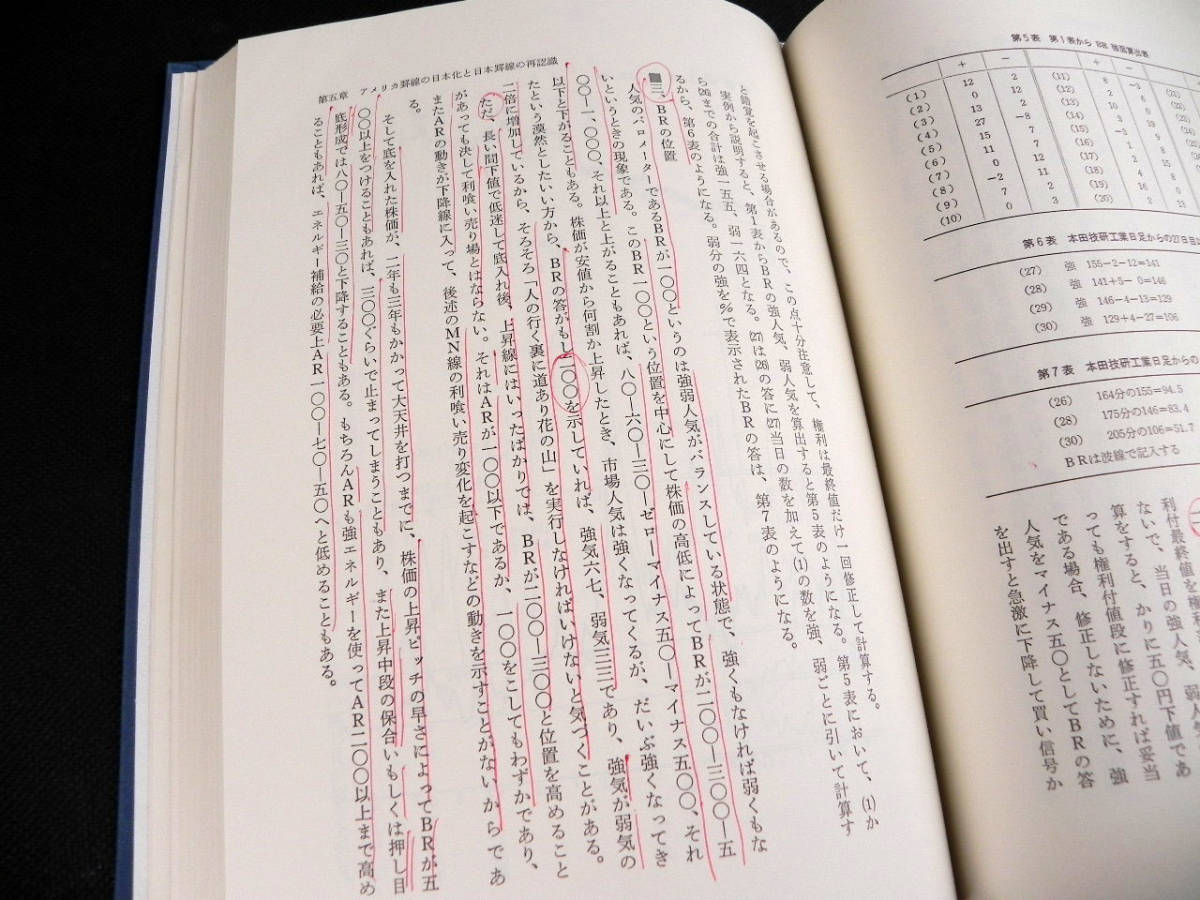 第5表 第1表から BR 強弱算出表
+ − + −
(1)
(2)
(3)
(4)
(5)
(6)
(7)
(8)
(9)
(10)
(11)
(12)
(13)
(14)
(15)
(16)
(17)
(18)
(19)
(20)
第6表 本田技研工業日足からの27日目
(27) 強 155−2−12=141
(28) 強 141+5− 0=146
(29) 強 146−4−13=129
(30) 強 129+4−27=106
第7表 本田技研工業日足からの
(26) 164分の155=94.5
(28) 175分の146=83.4
(30) 205分の106=51.7
BRは波線で記入する
利付最終値を権利
ないで、当日の強人気、弱
算をすると、かりに五〇円下値であ
っても権利付値段に修正すれば妥当
である場合、修正しないために、強
人気をマイナス五〇としてBRの答
を出すと急激に下降して買い信号か
と錯覚を起こさせる場合があるので、この点十分注意して、権利は最終値だけ一回修正して計算する。
実例から説明すると、第1表からBRの強人気、弱人気を算出すると第5表のようになる。第5表において、(1)か
ら(26)までの合計は強一五五、弱一六四となる。(27)は(26)の答に(27)当日の数を加えて(1)の数を強、弱ごとに引いて計算す
るから、第6表のようになる。弱分の強を%で表示されたBRの答は、第7表のようになる。
■三、BRの位置
人気のバロメーターであるBRが一〇〇というのは強弱人気がバランスしている状態で、強くもなければ弱くもな
いというときの現象である。このBR一〇〇という位置を中心にして株価の高低によってBRが二〇〇―三〇〇―五
〇〇―一、〇〇〇、それ以上と上がることもあれば、八〇―六〇―三〇―ゼロ―マイナス五〇―マイナス五〇〇、それ
以下と下がることもある。株価が安値から何割か上昇したとき、市場人気は強くなってくるが、だいぶ強くなってき
たという漠然としたいい方から、BRの答がもし二〇〇を示していれば、強気六七、弱気三三であり、強気が弱気の
二倍に増加しているから、そろそろ「人の行く裏に道あり花の山」を実行しなければいけないと気づくことがある。
ただ、長い間下値で低迷して底入れ後、上昇線にはいったばかりでは、BRが二〇〇―三〇〇と位置を高めること
があっても決して利喰い売り場とはならない。それはARが一〇〇以下であるか、一〇〇をこしてもわずかであり、
またARの動きが下降線に入って、後述のMN線の利喰い売り変化を起こすなどの動きを示すことがないからであ
る。
そして底を入れた株価が、二年も三年もかかって大天井を打つまでに、株価の上昇ピッチの早さによってBRが五
〇〇以上をつけることもあれば、三〇〇ぐらいで止まってしまうこともあり、また上昇中段の保合いもしくは押し目
底形成では八〇―五〇―三〇と下降することもある。もちろんARも強エネルギーを使ってAR二〇〇以上まで高め
ることもあれば、エネルギー補給の必要上AR一〇〇―七〇―五〇へと低めることもある。
第五章 アメリカ罫線の日本化と日本罫線の再認識